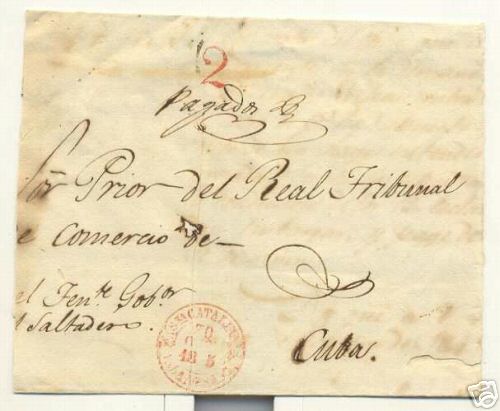 2
Pagados
Sor Prior del Real Tribunal
e Comercio de
el Tente Gobor
l Saltadero.
Cuba.